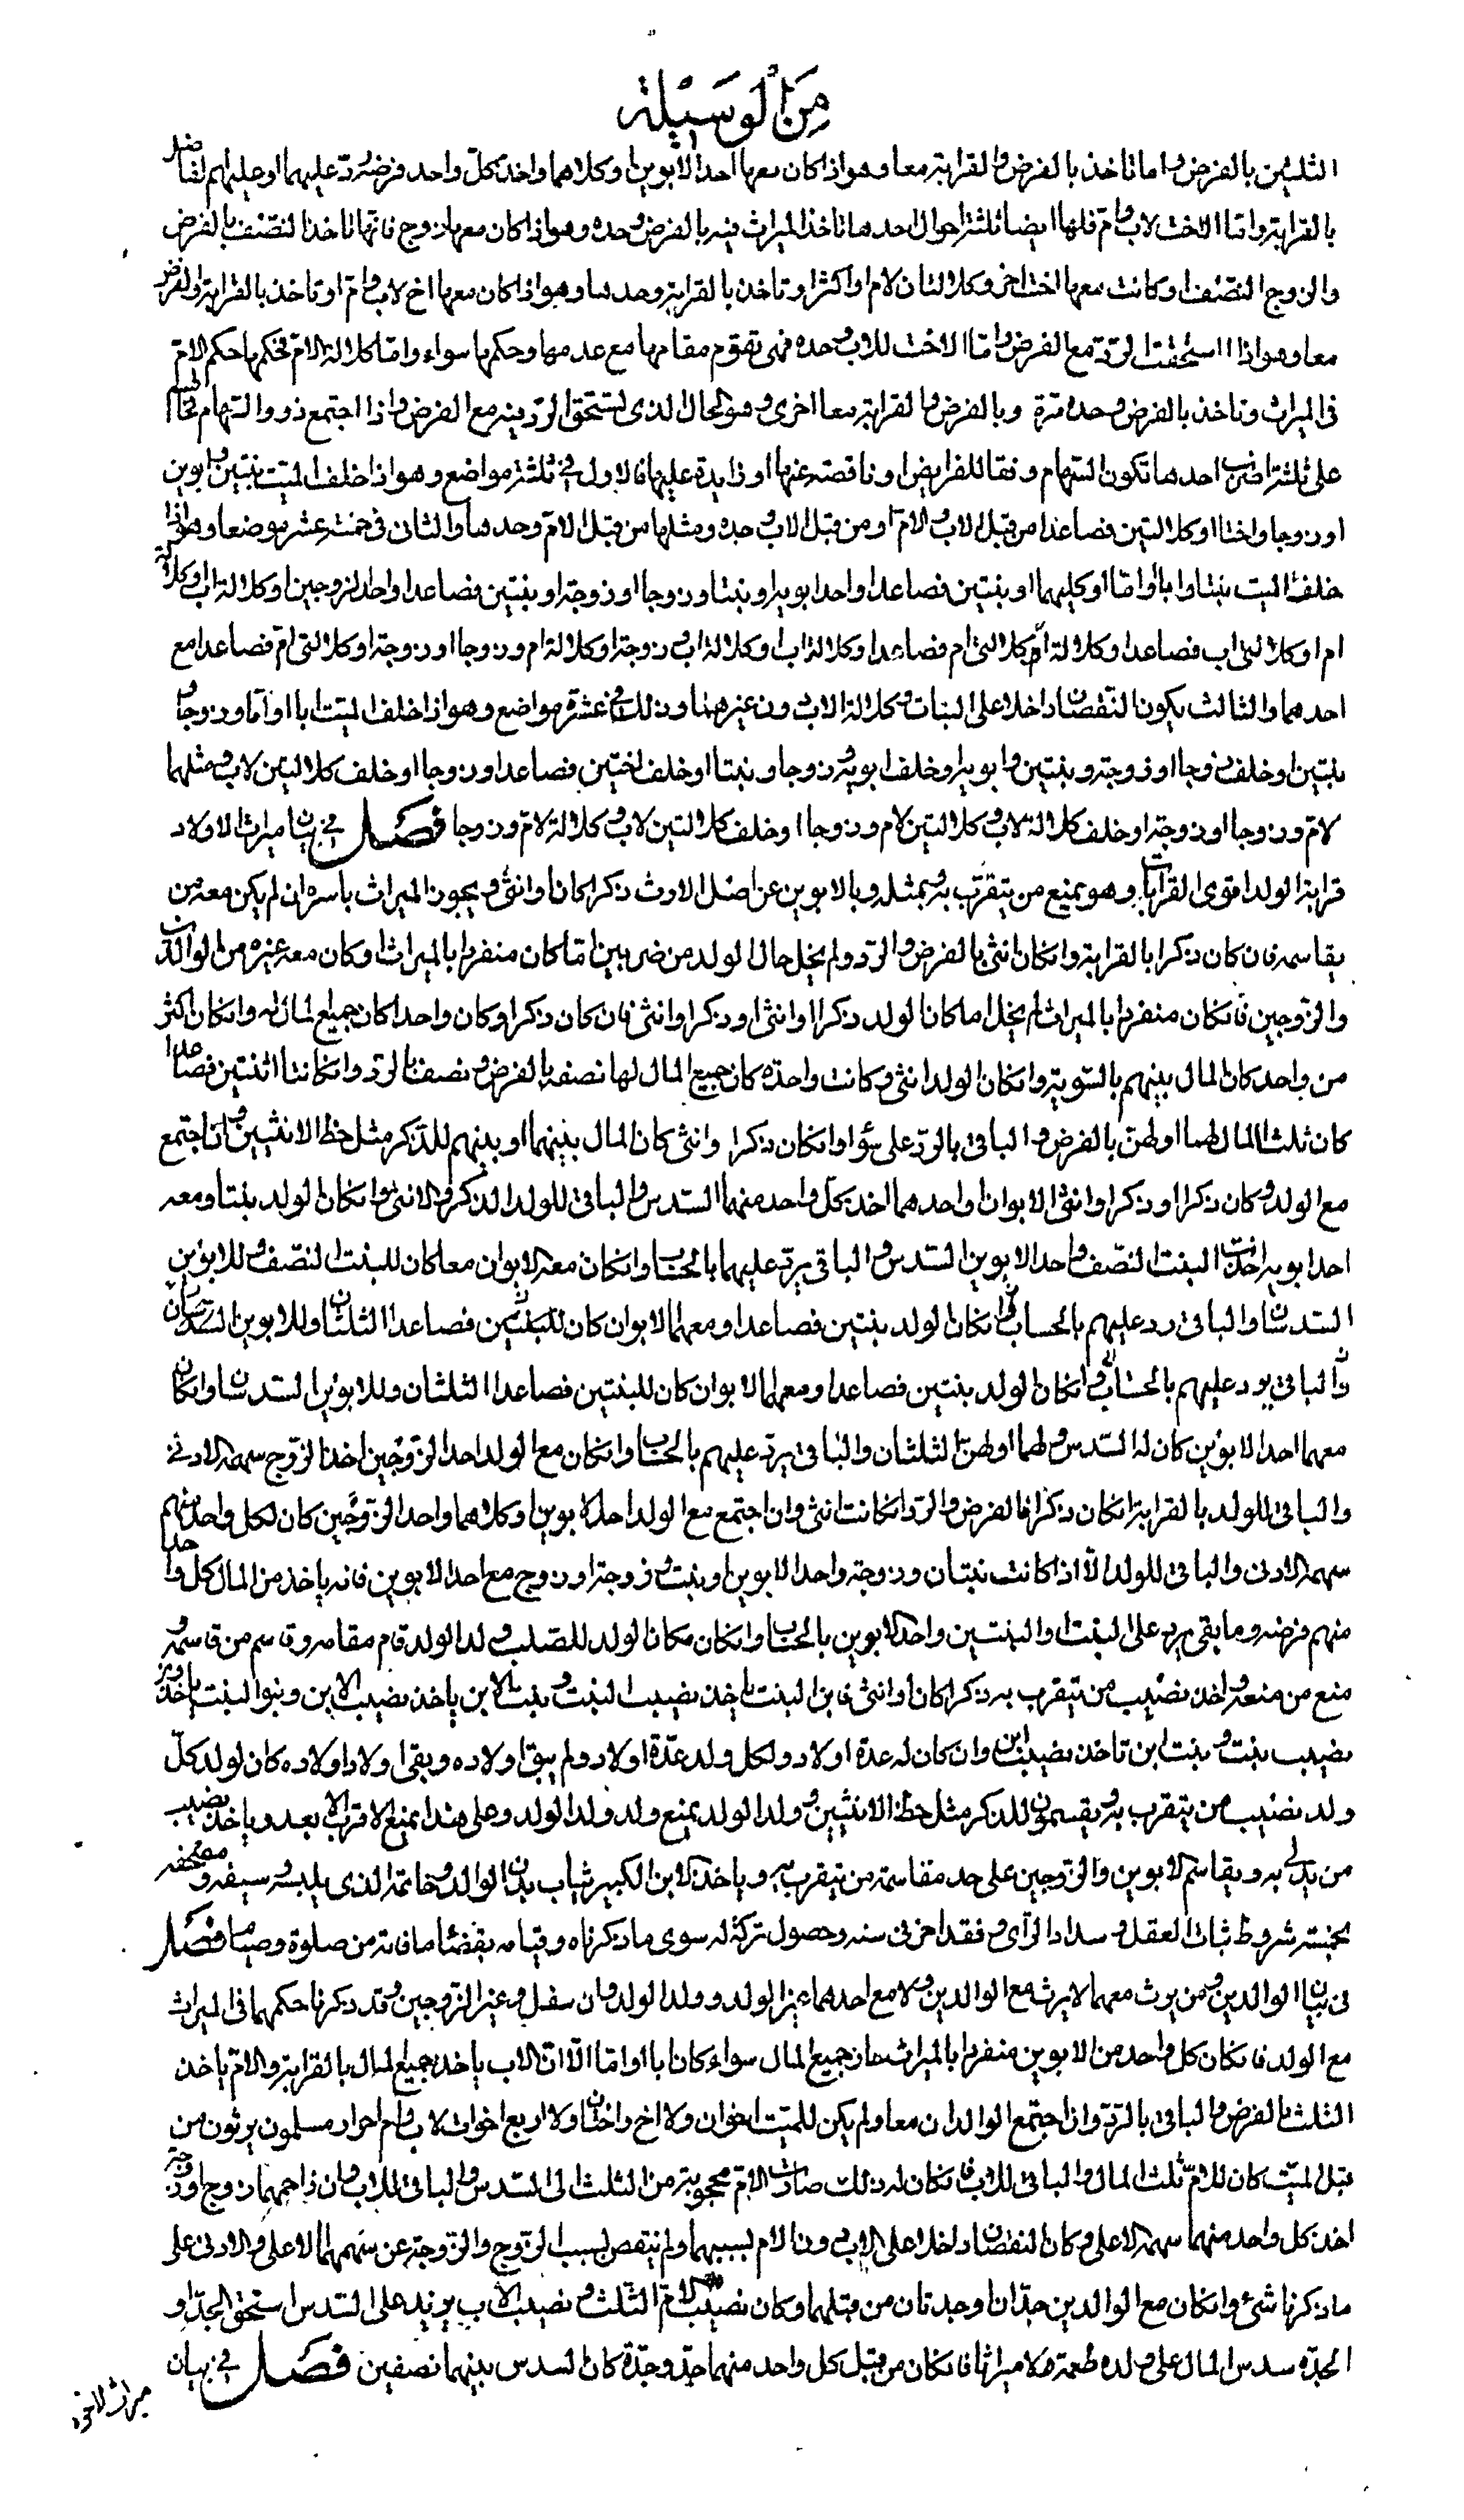 من الوسيلة
الثلثين بالفرض واما تاخذ بالفرض والقرابة معا وهو اذا كان معها احد الابوين او كلاهما واخذ كل واحد فرضه رد عليهما او عليهم الفاضل
بالقرابة واما الاخت لاب وام فلها ايضا ثلثة احوال احدها تاخذ الميراث فيه بالفرض وحده وهو اذا كان معها زوج فانها تاخذ النصف بالفرض
والزوج النصف او كانت معها اخت اخرى وكلالتان لام او اكثر او تاخذ بالقرابة وحدها وهو اذا كان معها اخ لاب وام او تاخذ بالقرابة والفرض
معا وهو اذا استحقت الرد مع الفرض واما الاخت للاب وحده فهى تقوم مقامها مع عدمها وحكمها سواء واما كلالة الام فحكمها حكم الام
فى الميراث وتاخذ بالفرض وحده مرة وبالفرض والقرابة معا اخرى وهو الحال الذى تستحق الرد فيه مع الفرض واذا اجتمع ذوو السهام
على ثلثة اضرب احدها تكون السهام وفقا للفرايض او ناقصة عنها او زايدة عليها فالاول فى ثلثة مواضع وهو اذا خلف الميت بنتين وابوين
او زوجا واختا او كلالتين فصاعدا من قبل الاب والام او من قبل الاب وحده ومثلها من قبل الام وحدها والثانى فى خمسة عشر موضعا وهو اذا
خلف الميت بنتا وابا واما او كليهما او بنتين فصاعدا واحد ابويه او بنتا وزوجا او زوجة او بنتين فصاعدا واحد الزوجين او كلالة اب وكلالة
ام او كلالتى اب فصاعدا وكلالة ام او كلالتى ام فصاعدا وكلالة اب او كلالة اب وزوجة او كلالة ام وزوجا او زوجة او كلالتى ام فصاعدا مع
احدهما والثالث يكون النقصان داخلا على البنات وكلالة الاب دون غيرهما وذلك فى عشرة مواضع وهو اذا خلف الميت ابا او اما وزوجا و
بنتين او خلف زوجا او زوجة وبنتين وابويه او خلف ابويه وزوجا وبنتا او خلف اختين فصاعدا وزوجا او خلف كلالتين لاب ومثلهما
لام وزوجا او زوجة او خلف كلالة لاب وكلالتين لام وزوجا او خلف كلالتين لاب وكلالة لام وزوجا فصل فى بيان ميراث الاولاد
قرابة الولد اقوى القرابات وهو يمنع من يتقرب به وبمثله وبالابوين عن اصل الارث ذكرا كان او انثى ويحوز الميراث باسره ان لم يكن معه من
يقاسمه فان كان ذكرا بالقرابة وان كان انثى بالفرض والرد ولم يخل حال الولد من ضربين اما كان منفردا بالميراث او كان معه غيره من الوالدين
والزوجين فان كان منفردا بالميراث لم يخل اما كان الولد ذكرا او انثى او ذكرا وانثى فان كان ذكرا وكان واحدا كان جميع المال له وان كان اكثر
من واحد كان المال بينهم بالسوية وان كان الولد انثى وكانت واحدة كان جميع المال لها نصفه بالفرض ونصفه بالرد وان كانتا اثنتين فصاعدا
كان ثلثا المال لهما او لهن بالفرض والباقى بالرد على سواء وان كان ذكرا وانثى كان المال بينهما او بينهم للذكر مثل حظ الانثيين وان اجتمع
مع الولد وكان ذكرا او ذكرا وانثى الابوان واحدهما اخذ كل واحد منهما السدس والباقى للولد الذكر والانثى وان كان الولد بنتا ومعه
احد ابويه اخذت البنت النصف واحد الابوين السدس والباقى يرد عليهما بالحساب وان كان معه الابوان معا كان للبنت النصف وللابوين
السدسان والباقى رد عليهم بالحساب وان كان الولد بنتين فصاعدا ومعهما الابوان كان للبنتين فصاعدا الثلثان وللابوين السدسان
والباقى يرد عليهم بالحساب وان كان الولد بنتين فصاعدا ومعهما الابوان كان للبنتين فصاعدا الثلثان وللابوين السدسان وان كان
معهما احد الابوين كان له السدس ولهما او لهن الثلثان والباقى يرد عليهم بالحساب وان كان مع الولد احد الزوجين اخذ الزوج سهمه الادنى
والباقى للولد بالقرابة ان كان ذكرا فالفرض والرد ان كانت انثى وان اجتمع مع الولد احد الابوين او كلاهما واحد الزوجين كان لكل واحد منهم
سهمه الادنى والباقى للولد الا اذا كانت بنتان وزوجة واحد الابوين او بنت وزوجة او زوج مع احد الابوين فانه ياخذ من المال كل واحد
منهم فرضه وما بقى يرد على البنت او البنتين واحد الابوين بالحساب وان كان مكان الولد للصلب ولد الولد قام مقامه وقاسم من قاسمه و
منع من منعه واخذ نصيب من يتقرب به ذكرا كان او انثى فابن البنت ياخذ نصيب البنت وبنت الابن ياخذ نصيب الابن وبنوا البنت ياخذون
نصيب بنت وبنت ابن تاخذ نصيب ابن وان كان له عدة اولاد ولكل ولد عدة اولاد ولم يبق اولاده وبقى اولاد اولاده كان لولد كل
ولد نصيب من يتقرب به ويقسمون للذكر مثل حظ الانثيين وولد الولد يمنع ولد ولد الولد وعلى هذا يمنع الاقرب الابعد وياخذ نصيب
من يدلى به ويقاسم الابوين والزوجين على حد مقاسمة من يتقرب به وياخذ الابن الكبير ثياب بدن الوالد وخاتمه الذى يلبسه وسيفه ومصحفه
بخمسة شروط ثبات العقل وسداد الراى وفقد اخر فى سنه وحصول تركة له سوى ما ذكرناه وقيامه بقضاء ما فاته من صلوة وصيام فصل
فى بيان الوالدين ومن يرث معهما لا يرث مع الوالدين ولا مع احدهما غير الولد وولد الولد وان سفل وغير الزوجين وقد ذكرنا حكمهما فى الميراث
مع الولد فان كان كل واحد من الابوين منفردا بالميراث حاز جميع المال سواء كان ابا او اما الا ان الاب ياخذ جميع المال بالقرابة والام ياخذ
الثلث بالفرض والباقى بالرد وان اجتمع الوالدان معا ولم يكن للميت اخوان ولا اخ واختان ولا اربع اخوات لاب وام احرار مسلمون يرثون من
قبل الميت كان للام ثلث المال والباقى للاب فان كان له ذلك صارت الام محجوبة من الثلث الى السدس والباقى للاب وان زاحمهما زوج او زوجة
اخذ كل واحد منهما سهمه الاعلى وكان النقصان داخلا على الاب دون الام بسببهما ولم ينتقص لسبب الزوج والزوجة عن سهمهما الاعلى والادنى على
ما ذكرنا شئ وان كان مع الوالدين جدان او جدتان من قبلهما وكان نصيب الام الثلث ونصيب الاب يزيد على السدس استحق الجد او
الجدة سدس المال على ولده طعمة لا ميراثا فان كان من قبل كل واحد منهما جد وجدة كان السدس بينهما نصفين فصل فى بيان
ميراث الاخوة